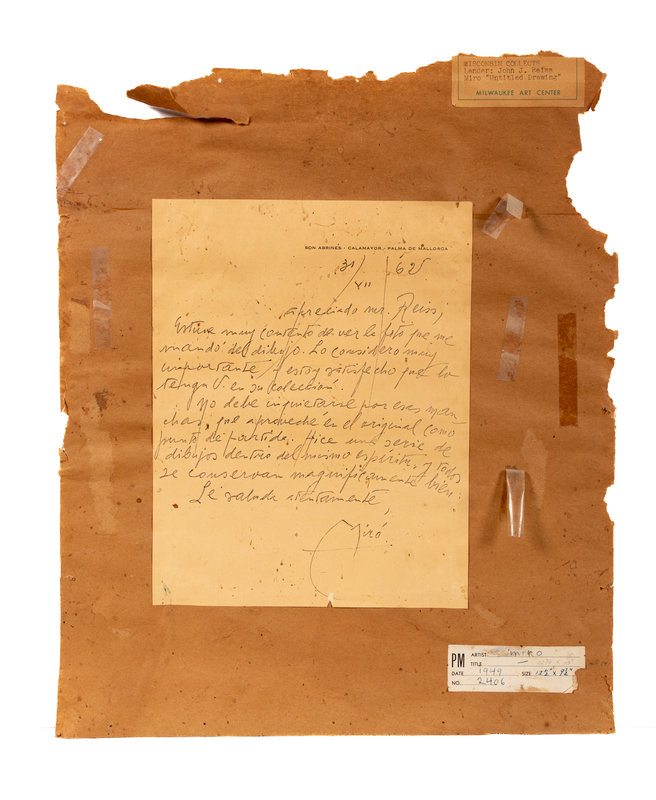 WISCONSIN COLLECTS
Lender: John J. Reiss
Miro "Untitled Drawing"
MILWAUKEE ART CENTER
SON ABRINES - CALAMAYOR - PALMA DE MALLORCA
31/VII 62
apreciado mr. Reiss,
Estuve muy contento de ver la foto que me
mandó del dibujo. Lo considero muy
importante y estoy satisfecho que lo
tenga V. en su colección.
No debe inquietarse por esas man
chas, que aproveché en el original como
punto de partida. Hice una serie de
dibujos dentro del mismo espíritu, y todos
se conservan magníficamente bien.
Le saluda atentamente,
Miró.
PM ARTIST: miro
TITLE —
DATE 1949 SIZE 12½" x 9½"
NO. 2406